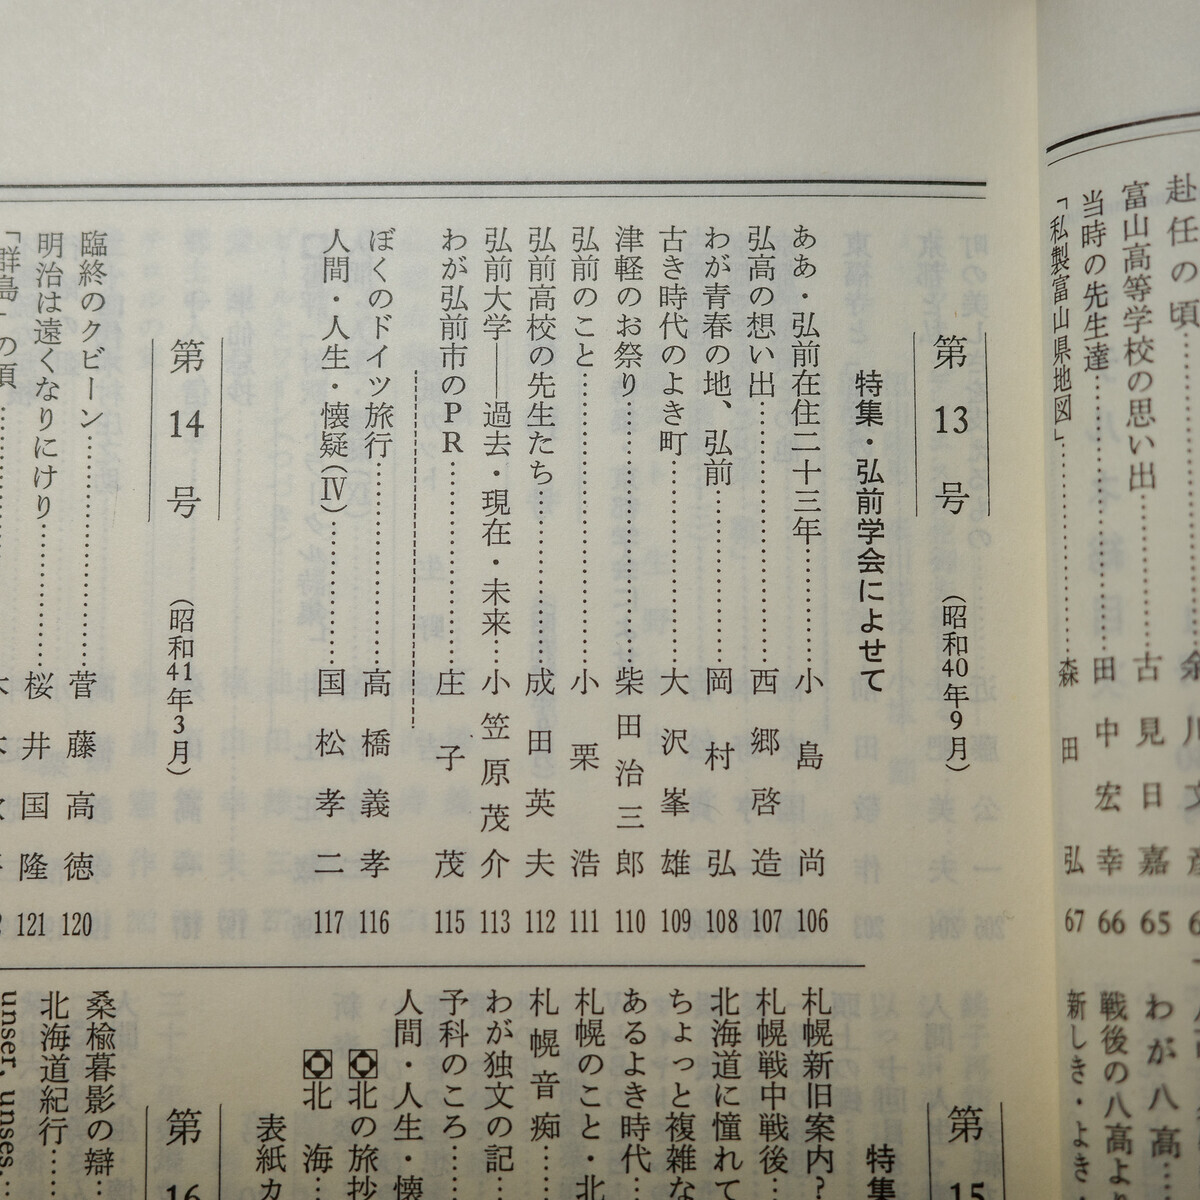 赴任の頃
富山高等学校の思い出……古見日嘉 65
当時の先生達……田中宏幸 66
「私製富山県地図」……森田弘 67
わが八高…
戦後の八高よ
新しき・よき
第13号 (昭和40年9月)
特集・弘前学会によせて
ああ・弘前在住二十三年……小島尚 106
弘高の想い出……西郷啓造 107
わが青春の地、弘前……岡村弘 108
古き時代のよき町……大沢峯雄 109
津軽のお祭り……柴田治三郎 110
弘前のこと……小栗浩 111
弘前高校の先生たち……成田英夫 112
弘前大学――過去・現在・未来……小笠原茂介 113
わが弘前市のPR……庄子茂 115
ぼくのドイツ旅行……高橋義孝 116
人間・人生・懐疑(Ⅳ)……国松孝二 117
第14号 (昭和41年3月)
臨終のクビーン……菅藤高徳 120
明治は遠くなりにけり……桜井国隆 121
「群島」の頃……
第15
特集
札幌新旧案内?
札幌戦中戦後…
北海道に憧れて
ちょっと複雑な
あるよき時代…
札幌のこと・北
札幌音痴…
わが独文の記…
予科のころ…
人間・人生・懐
北の旅抄
北海…
表紙カ
第16
桑楡暮影の辯…
北海道紀行…
unser, unses.…